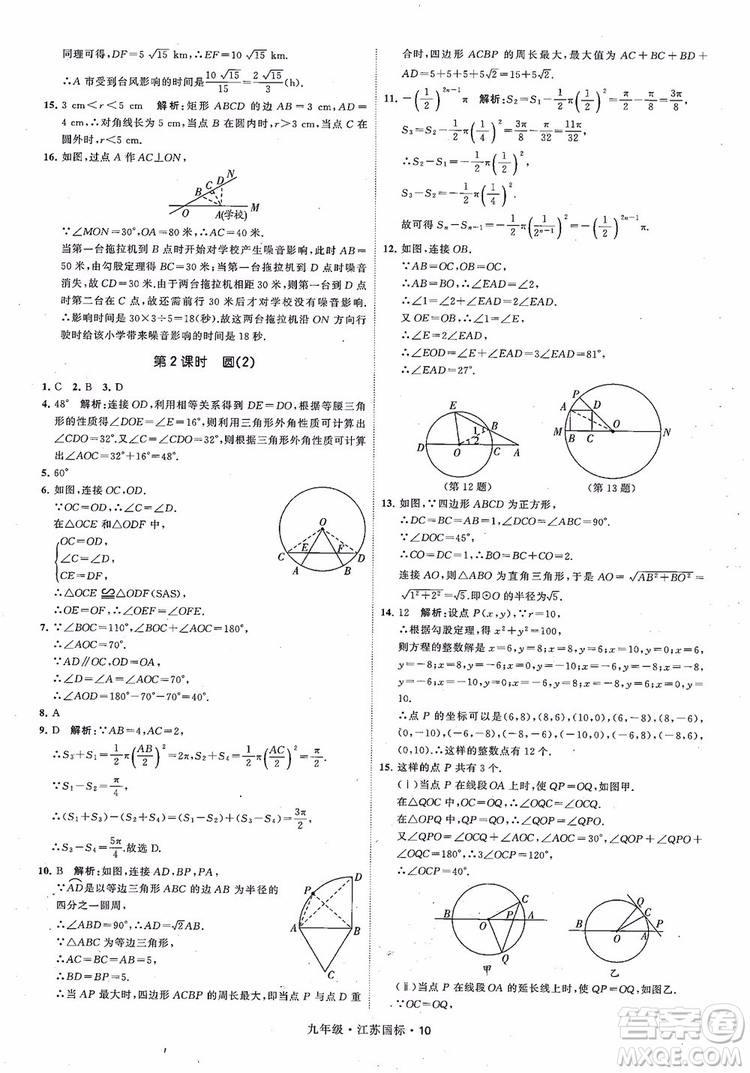 同理可得，DF=5√15 km，∴EF=10√15 km.
∴A 市受台风影响的时间是10√15/15=2√15/3(h).
15. 3 cm<r<5 cm 解析：矩形 ABCD 的边 AB=3 cm，AD=
4 cm，∴对角线长为 5 cm，当点 B 在圆内时，r>3 cm，当点 C 在
圆外时，r<5 cm.
16. 如图，过点 A 作 AC⊥ON，
B C D N
O A(学校) M
∵∠MON=30°，OA=80 米，∴AC=40 米.
当第一台拖拉机到 B 点时开始对学校产生噪音影响，此时 AB=
50 米，由勾股定理得 BC=30 米，当第一台拖拉机到 D 点时噪音
消失，∴CD=30 米.由于两台拖拉机相距 30 米，则第一台到 D 点
时第二台在 C 点，还需前行 30 米后才对学校没有噪音影响.
∴影响时间应是 30×3÷5=18(秒).故这两台拖拉机沿 ON 方向行
驶时给该小学带来噪音影响的时间是 18 秒.
第 2 课时 圆(2)
1. C 2. B 3. D
4. 48° 解析：连接 OD，利用相等关系得到 DE=DO，根据等腰三角
形的性质得∠DOE=∠E=16°，利用三角形外角性质可计算出
∠CDO=32°，又∠C=∠CDO=32°，则根据三角形外角性质可计算
出∠AOC=32°+16°=48°.
5. 60°
6. 如图，连接 OC，OD.
∵OC=OD，∴∠C=∠D.
在△OCE 和△ODF 中，
OC=OD，
∠C=∠D，
CE=DF，
∴△OCE≌△ODF(SAS).
∴OE=OF，∴∠OEF=∠OFE.
O
C E F D
A B
7. ∵∠BOC=110°，∠BOC+∠AOC=180°，
∴∠AOC=70°.
∵AD∥OC，OD=OA，
∴∠D=∠A=70°.
∴∠AOD=180°-2∠A=40°.
8. A
9. D 解析：∵AB=4，AC=2，
∴S₃+S₁=1/2π(AB/2)²=2π，S₂+S₄=1/2π(AC/2)²=π/2.
∵S₁-S₂=π/4，
∴(S₁+S₃)-(S₂+S₄)=(S₁-S₂)+(S₃-S₄)=3π/2.
∴S₃-S₄=5π/4.故选 D.
10. B 解析：如图，连接 AD，BP，PA，
∵AD是以等边三角形 ABC 的边 AB 为半径的
四分之一圆周，
∴∠ABD=90°，∴AD=√2AB.
∵△ABC 为等边三角形，
∴AC=BC=AB=5.
∴BD=BP=5.
D
P
A B
C
∴当 AP 最大时，四边形 ACBP 的周长最大，即当点 P 与点 D 重
合时，四边形 ACBP 的周长最大，最大值为 AC+BC+BD+
AD=5+5+5+5√2=15+5√2.
11. -(1/2)²ⁿ⁻¹π 解析：S₂-S₁=1/2π×(1/2)²-π/2=-3π/8，
S₃-S₁=π/2-1/2π(1/2)²-1/2π×(1/4)²-π/2=-5π/32=11π/32.
∴S₂-S₁=-π(1/2)³.
S₃-S₂=-π(1/2)⁵.
故可得 Sₙ-Sₙ₋₁=-π(1/2)²ⁿ⁻¹=-(1/2)²ⁿ⁻¹π.
12. 如图，连接 OB.
∵AB=OC，OB=OC，
∴AB=BO，∴∠EAD=∠2.
∴∠1=∠EAD+∠2=2∠EAD.
又 OE=OB，∴∠E=∠1.
∴∠EOD=∠E+∠EAD=3∠EAD=81°.
∴∠EAD=27°.
E B 1 2
D O C A
(第 12 题)
P
A D
M B C O N
(第 13 题)
13. 如图，∵四边形 ABCD 为正方形，
∴DC=BC=AB=1，∠DCO=∠ABC=90°.
∵∠DOC=45°，
∴CO=DC=1，
∴BO=BC+CO=BC+CD=2.
连接 AO，则△ABO 为直角三角形，于是 AO=√AB²+BO²=
√1²+2²=√5，即⊙O 的半径为√5.
14. 12 解析：设点 P(x，y)，∵r=10，
∴根据勾股定理，得 x²+y²=100，
则方程的整数解是 x=6，y=8；x=8，y=6；x=10，y=0；x=6，
10.
∴点 P 的坐标可以是(6，8)，(8，6)，(10，0)，(6，-8)，(8，-6)，
(0，10).∴这样的整数点有 12 个.
15. 这样的点 P 共有 3 个.
(ⅰ)当点 P 在线段 OA 上时，使 QP=OQ，如图甲.
在△QOC 中，∵OC=OQ，∴∠OQC=∠OCQ.
在△OPQ 中，∵QP=OQ，∴∠QOP=∠QPO.
又∵∠QPO=∠OCQ+∠AOC，∠AOC=30°，∠QOP+∠QPO+
∠OQC=180°，
∴∠OCP=40°.
C
B O P A
Q
甲
Q C
B O A P
乙
(ⅱ)当点 P 在线段 OA 的延长线上时，使 QP=OQ，如图乙.
∵OC=OQ，
九年级·江苏国标·10
答案圈
MXQE.COM